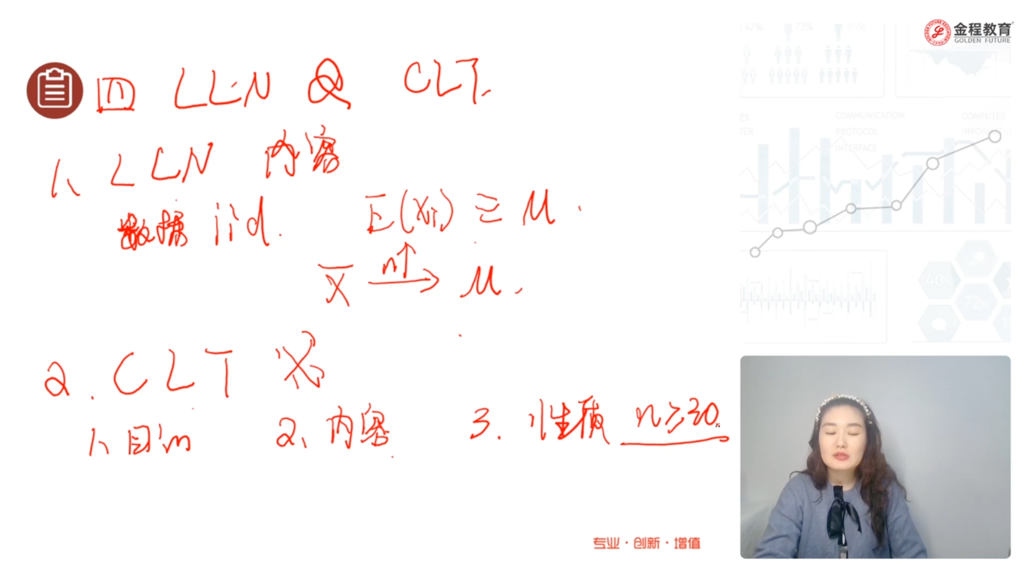 金程教育
GOLDEN FUTURE
四 LLN & CLT.
1、LLN 内容
数据 iid. E(Xi) = μ.
X̄ n↑→ μ.
2. CLT
1、目的 2、内容 3. 性质 n≥30
COMMUNICATION
PROTOCOL
INTERFACE
专业·创新·增值